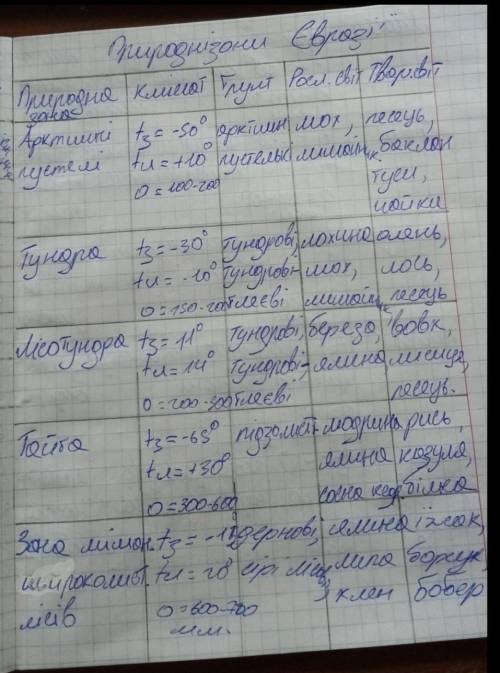 Природні зони Євразії
Природна зона Клімат Ґрунт Росл. світ Твар. світ
Арктичні tз = -50° арктичн мох, песець,
пустелі tл = +10° пустельн лишайник баклан
О = 100-200 гуси,
чайки
Тундра tз = -30° тундрові, лохина олень,
tл = -10° тундрово- мох, лось,
О = 150-200 глеєві лишайник песець
Лісотундра tз = 11° тундрові, береза, вовк,
tл = 14° тундрові- ялина лисиця,
О = 200-300 глеєві песець.
Тайга tз = -65° підзолисті модрина рись,
tл = +30° ялина козуля,
О = 300-600 сосна кедр білка
Зона мішан. дернові, ялина їжак,
широколист tл = 20° сірі лісові липа борсук,
лісів О = 600-700 клен бобер
мм.